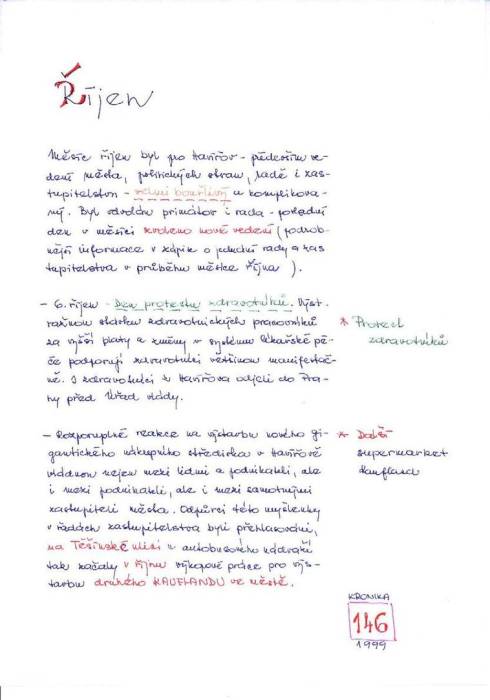 Říjen
Měsíc říjen byl pro Havířov - především ve-
dení města, politických stran, radě i zas-
tupitelstvu - velmi bouřlivý a komplikova-
ný. Byl odvolán primátor i rada - poslední
den v měsíci zvoleno nové vedení (podrob-
nější informace v zápise o jednání rady a zas
tupitelstva v průběhu měsíce října ).
- 6. říjen - Den protestu zdravotníků. Výst
ražnou stávku zdravotnických pracovníků
za vyšší platy a změny v systému lékařské pé-
če podporují zdravotníci většinou manifestač-
ně. I zdravotníci z Havířova odjeli do Pra-
hy před Úřad vlády.
* Protest
zdravotníků
- Rozporuplné reakce na výstavbu nového gi-
gantického nákupního střediska v Havířově
vládnou nejen mezi lidmi a podnikateli, ale
i mezi podnikateli, ale i mezi samotnými
zastupiteli města. Odpůrci této myšlenky
v řadách zastupitelstva byli přehlasováni,
na Těšínské ulici u autobusového nádraží
tak začaly v říjnu výkopové práce pro výs-
tavbu druhého KAUFLANDU ve městě.
* Další
supermarket
Kaufland
KRONIKA
146
1999